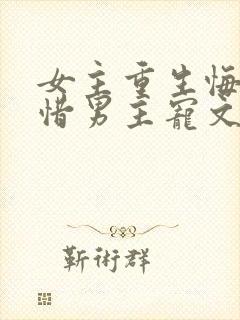 女主重生悔
惜男主寵文
靳術群